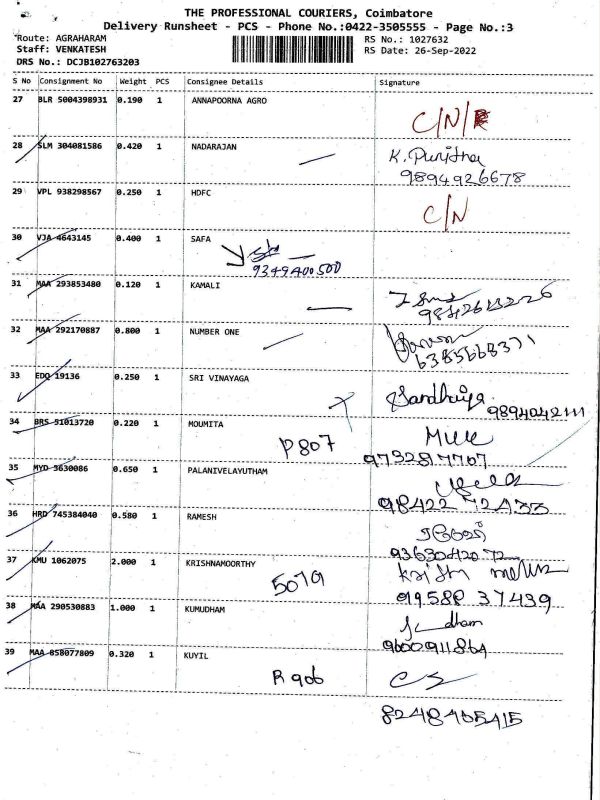 THE PROFESSIONAL COURIERS, Coimbatore
Delivery Runsheet - PCS - Phone No.:0422-3505555 - Page No.:3
Route: AGRAHARAM
RS No.: 1027632
Staff: VENKATESH
RS Date: 26-Sep-2022
DRS No.: DCJB102763203
S No Consignment No Weight PCS Consignee Details Signature
27 BLR 5004398931 0.190 1 ANNAPOORNA AGRO
C/N/R
28 SLM 304081586 0.420 1 NADARAJAN K. Punitha
9894926678
29 VPL 938298567 0.250 1 HDFC
C/N
30 VJA 4643145 0.400 1 SAFA
9349400500
31 MAA 293853480 0.120 1 KAMALI
32 MAA 292170887 0.800 1 NUMBER ONE
6385668371
33 EDQ 19136 0.250 1 SRI VINAYAGA Sandhiya
9894042111
34 BRS 51013720 0.220 1 MOUMITA
P807
9732817707
35 MYD 3630086 0.650 1 PALANIVELAYUTHAM
98422 72433
36 HRD 745384040 0.580 1 RAMESH ரமேஷ்
9363042072
37 KMU 1062075 2.000 1 KRISHNAMOORTHY
5079
99588 37439
38 MAA 290530883 1.000 1 KUMUDHAM
9600911864
39 MAA 858077809 0.320 1 KUYIL
R906
8248465415